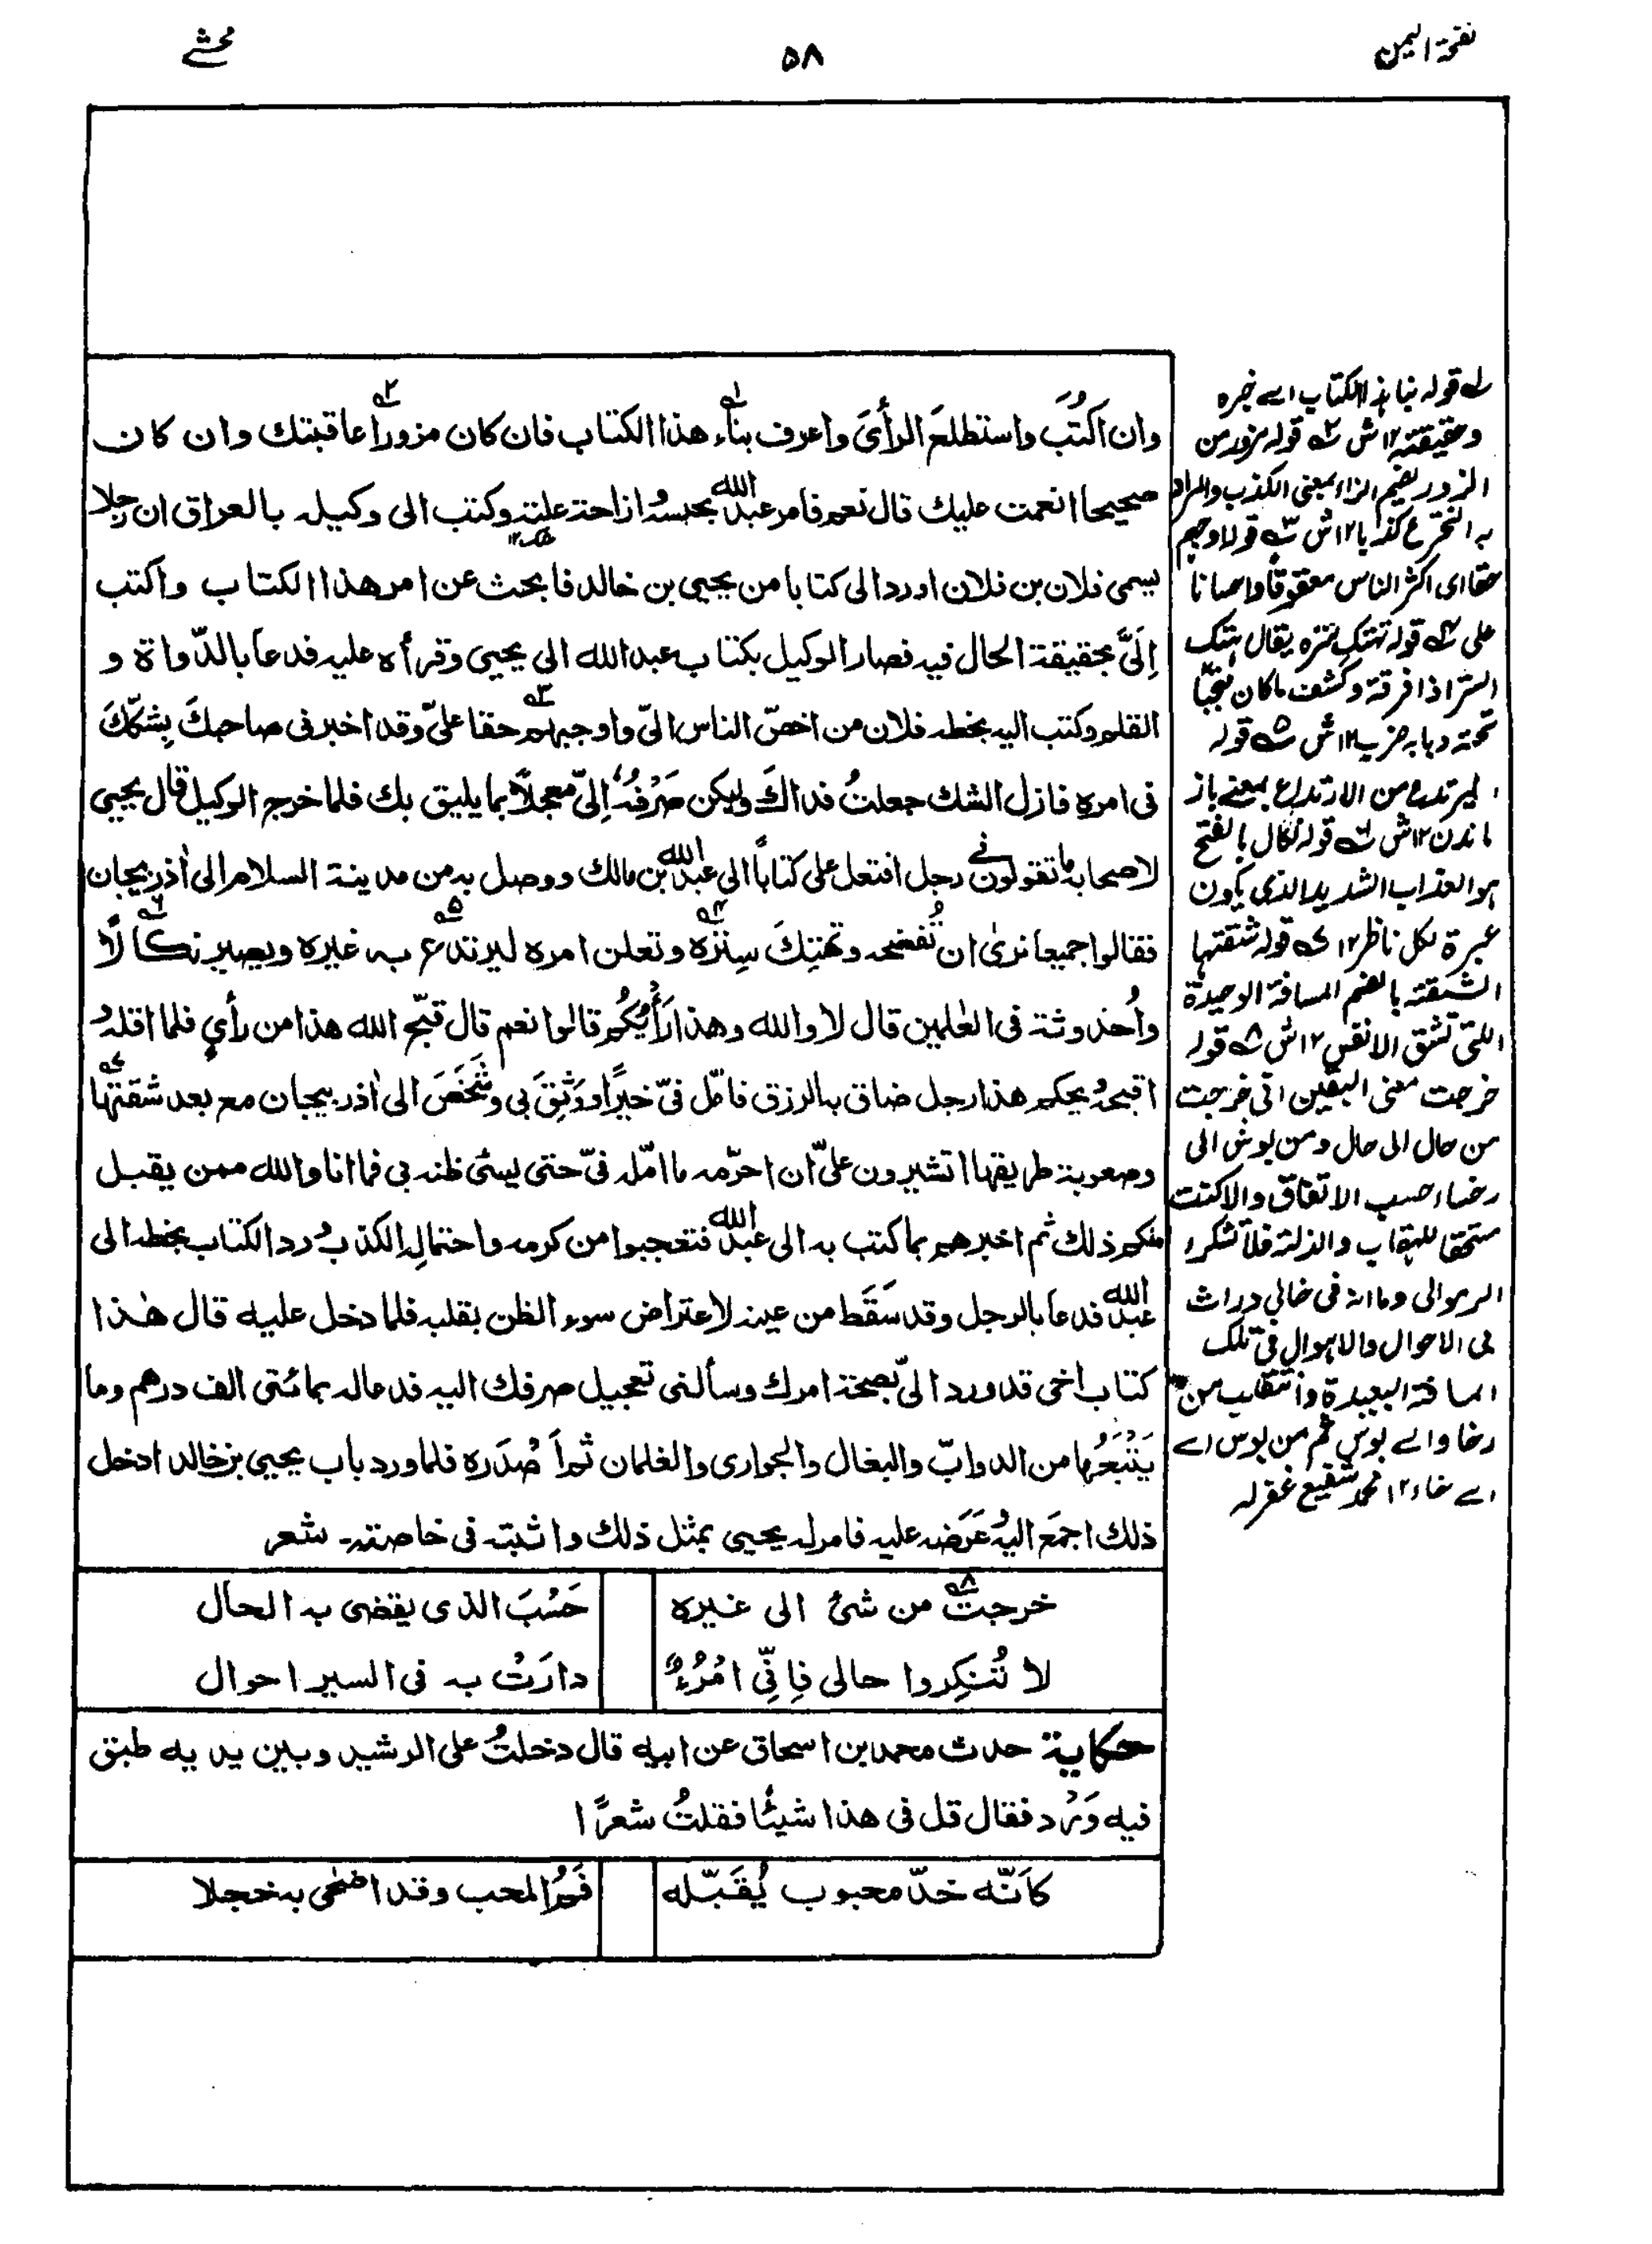 نفحة اليمن
٥٨
محشے
وان اَكتُبَ واستطلعَ الرأىَ واعرف بناء هذا الكتاب فان كان مزورا عاقبتك وان كان
صحيحا انعمت عليك قال نعم فامر عبد الله بحبسه وازاحة علته وكتب الى وكيله بالعراق ان رجلا
يسمى فلان بن فلان اورد الى كتابا من يحيى بن خالد فابحث عن امر هذا الكتاب واكتب
اِلَىَّ بحقيقة الحال فيه فصار الوكيل بكتاب عبد الله الى يحيى وقرأه عليه فدعا بالدّواة و
القلم وكتب اليه بخطه فلان من اخصّ الناس الىّ واوجبهم حقا علىّ وقد اخبرنى صاحبكَ بِشكّكَ
فى امره فازل الشك جعلتُ فداكَ وليكن صَرْفُه اِلىّ معجلاً بما يليق بك فلما خرج الوكيل قال يحيى
لاصحابه ما تقولون فے رجل افتعل على كتاباً الى عبد الله بن مالك ووصل به من مدينة السلام الى اٰذربيجان
فقالوا جميعا نرىٰ ان تُفضحه وتهتِكَ سِتْرَه وتعلن امره ليرتدع به غيره ويصير نكالًا
واُحذوثة فى العٰلمين قال لا والله وهذا رَأْيُكُم قالوا نعم قال قبّح الله هذا من رأىٍ فلما اقله و
اقبحه ويحكم هذا رجل ضاق به الرزق فامّل فىّ خيرًا ووَثِقَ بى وشَخَصَ الى اٰذربيجان مع بعد شقتها
وصعوبة طريقها اتشيرون علىّ ان احرّمه ما امّله فىّ حتى يسئ ظنه بى فما انا والله ممن يقبل
منكم ذلك ثم اخبرهم بما كتب به الى عبد الله فتعجبوا من كرمه واحتمالِه الكذب ورد الكتاب بخطه الى
عبد الله فدعا بالرجل وقد سَقَط من عينه لاعتراض سوء الظن بقلبه فلما دخل عليه قال هٰذا
كتاب اخى قد ورد الىّ بصحة امرك وسألنى تعجيل صرفك اليه فدعا له بمائتى الف درهم وما
يَتْبَعُها من الدوابّ والبغال والجوارى والغلمان ثم اَصْدَره فلما ورد باب يحيى بن خالد ادخل
ذلك اجمَع اليه وعَرَضه عليه فامر له يحيى بمثل ذلك واثبته فى خاصته۔ شعر
خرجتُ من شئ الى غيره حَسْبَ الذى يقضى به الحال
لا تُنكِروا حالى فاِنّى امْرُءٌ دارَتْ به فى السير احوال
حكاية حدث محمد بن اسحاق عن ابيه قال دخلتُ على الرشيد وبين يديه طبق
فيه وَرْد فقال قل فى هذا شيئًا فقلتُ شعرًا
كاَنّه خدّ محبوب يُقَبّله فَمُ المحب وقد اضحٰى به خجلا
لـه قوله نباء هذا الكتاب اے خبره
وحقيقته ١٢ ش ٢ـه قوله مزور من
الزور بضم الزاء بمعنى الكذب والمراد
به المخترع كذبا ١٢ ش ٣ـه قوله اوجبهم
حقا اى اكثر الناس حقوقا واحسانا
على ٤ـه قوله تهتك ستره يقال هتك
الستر اذا فرقه وكشف ما كان
تحته وبابه ضرب ١٢ ش ٥ـه قوله
ليرتدع من الارتداع بمعنے باز
ماندن ١٢ ش ٦ـه قوله نكال بالفتح
هو العذاب الشديد الذى يكون
عبرة لكل ناظر ١٢ ٧ـه قوله شقتها
الشقة بالضم المسافة
اللتى تشق الانفس ١٢ ش ٨ـه قوله
خرجت معنى البيتين انى خرجت
من حال الى حال ومن بوس الى
رخاء حسب الاتفاق والا كنت
مستحقا للعقاب والذلة فلا تنكروا
فى الاحوال والاهوال فى تلك
المسافة البعيدة وانتقلب من
رخاء الے بوس ثم من بوس اے
اے رخاء ١٢ محمد شفيع غفر له